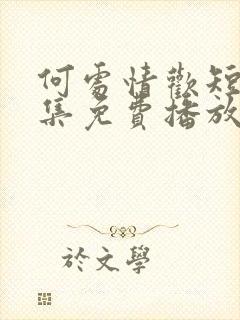 何處情歡短
集免費播放
於文學